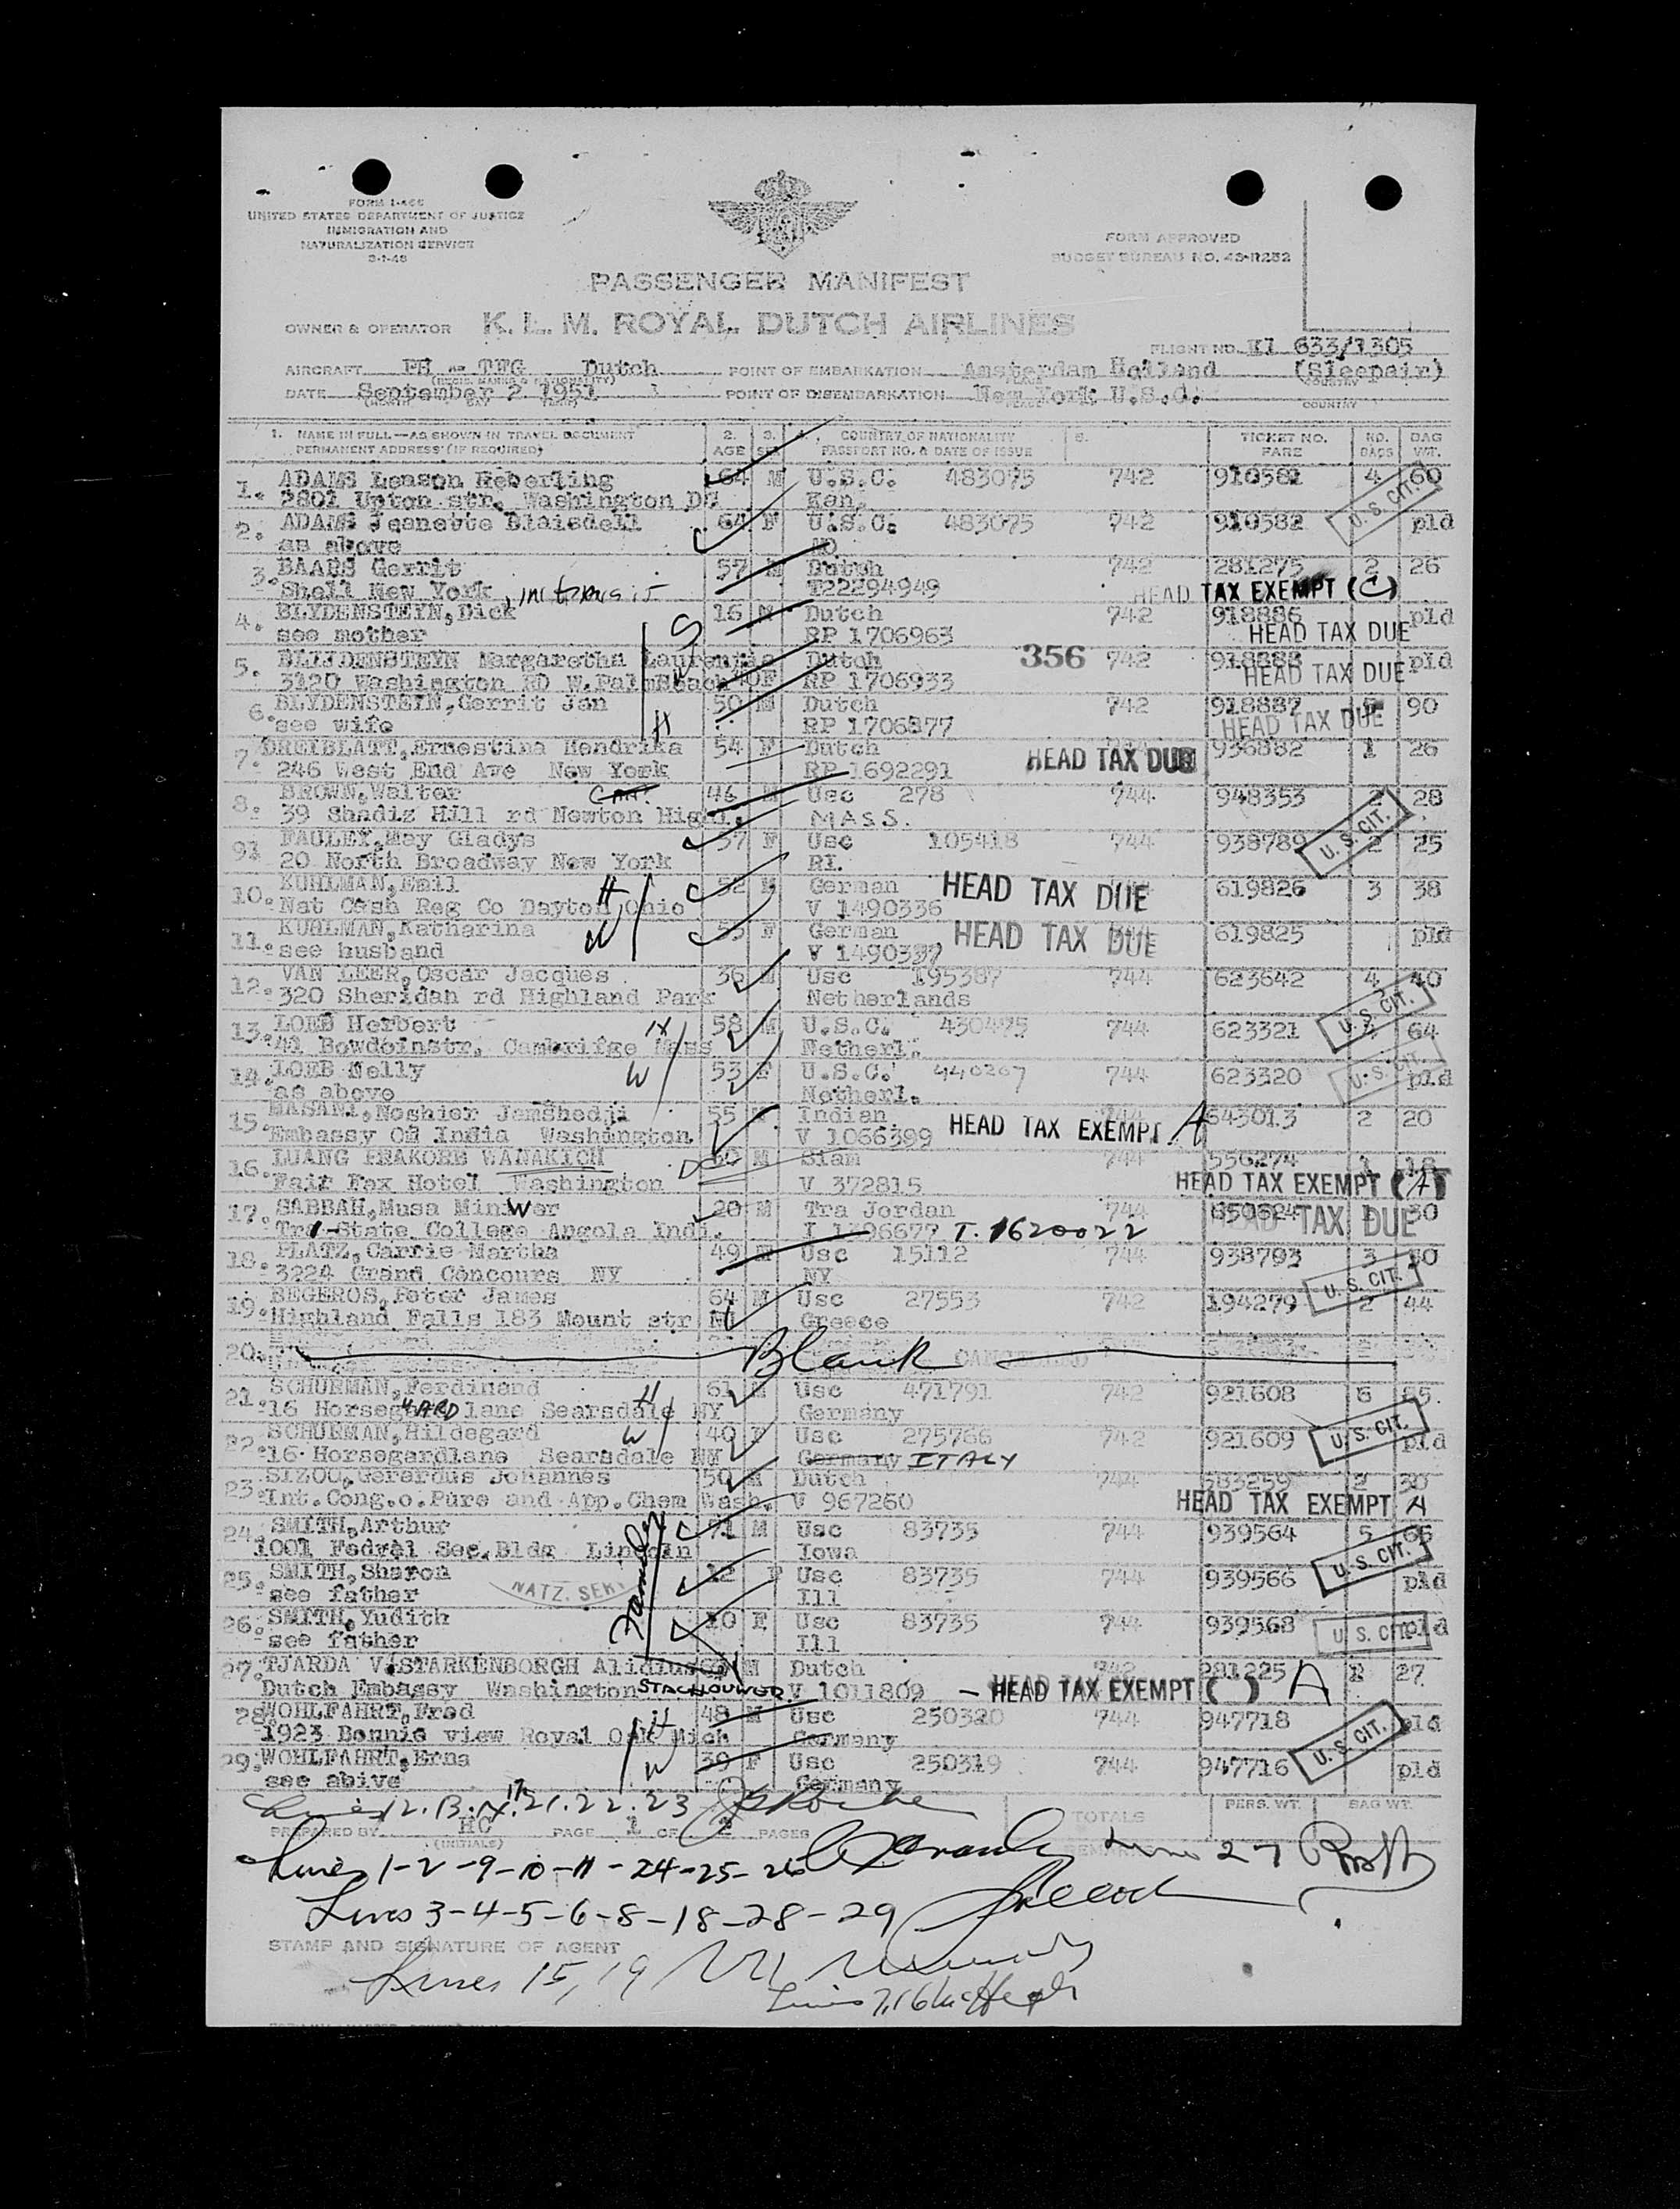 FORM I-466
UNITED STATES DEPARTMENT OF JUSTICE
IMMIGRATION AND
NATURALIZATION SERVICE
FORM APPROVED
BUDGET BUREAU NO. 43-R252
PASSENGER MANIFEST
OWNER & OPERATOR K. L. M. ROYAL DUTCH AIRLINES
FLIGHT NO. Kl 633/1305
AIRCRAFT PH - TFG Dutch POINT OF EMBARKATION Amsterdam Holland (Sleepair)
(REGIS. MARKS & NATIONALITY) PLACE COUNTRY
DATE September 2 1951 POINT OF DISEMBARKATION New York U.S.A.
(MONTH) DAY (YEAR) PLACE COUNTRY
1. NAME IN FULL—AS SHOWN IN TRAVEL DOCUMENT 2. 3. 4. COUNTRY OF NATIONALITY 5. TICKET NO. NO. BAG
PERMANENT ADDRESS (IF REQUIRED) AGE SEX PASSPORT NO. & DATE OF ISSUE FARE BAGS WT.
1. ADAMS Leason Heberling 64 M U.S.C. 483075 742 910581 4 60
2801 Upton str. Washington DC Kan. U.S. CIT.
2. ADAMS Jeanette Blaisdell 64 F U.S.C. 483075 742 910582 pld
as above MO
3. BAARS Gerrit 57 M Dutch 742 281275 2 26
Shell New York, in transit T22294949 HEAD TAX EXEMPT (C)
4. BLYDENSTEYN, Dick 16 M Dutch 742 918886 pld
see mother S RP 1706963 HEAD TAX DUE
5. BLIJDENSTEYN Margaretha Laurentia F Dutch 356 742 918888 pld
3120 Washington RD W.PalmBeach W RP 1706933 HEAD TAX DUE
6. BLYDENSTEYN, Gerrit Jan 50 M Dutch 742 918887 90
see wife H RP 1706877 HEAD TAX DUE
7. DREIBLATT, Ernestina Hendrika 54 F Dutch HEAD TAX DUE 936882 1 26
246 West End Ave New York RP 1692291
8. BROWN, Walter 46 M Usc 278 744 948353 2 28
39 Shadiz Hill rd Newton Highl. MASS. U.S. CIT.
9. PAULEY, May Gladys 57 F Usc 105418 744 938789 2 25
20 North Broadway New York RI.
10. KUHLMAN, Emil H 52 M German HEAD TAX DUE 619826 3 38
Nat Cash Reg Co Dayton Ohio V 1490336
11. KUHLMAN, Katharina W 55 F German HEAD TAX DUE 619825 pld
see husband V 1490337
12. VAN LEER, Oscar Jacques 36 M Usc 195387 744 623642 4 40
320 Sheridan rd Highland Park Netherlands U.S. CIT.
13. LOEB Herbert H 58 M U.S.C. 430475 744 623321 4 64
41 Bowdoinstr. Cambrifge Mass Netherl.
14. LOEB Nelly W 53 F U.S.C. 440267 744 623320 pld
as above Netherl. U.S. CIT.
15. MASANI, Noshier Jamshedji 55 M Indian 744 643013 2 20
Embassy Of India Washington V 1066399 HEAD TAX EXEMPT A
16. LUANG PRAKORB WANAKICH 50 M Siam 744 556274 1 18
Fair Fax Hotel Washington V 372815 HEAD TAX EXEMPT (A)
17. SABBAH, Musa Minwer 20 M Tra Jordan 744 1 30
Tri-State College Angola Indi. I 1396677 T. 1620022 HEAD TAX DUE
18. PLATZ, Carrie Martha 49 F Usc 15112 744 938793 3 30
3224 Grand Concours NY NY U.S. CIT.
19. BEGEROS, Peter James 64 M Usc 27553 742 194279 2 44
Highland Falls 183 Mount str NY Greece
20. Blank CANCELLED
21. SCHURMAN, Ferdinand H 61 M Usc 471791 742 921608 6 65
16 Horseguardlane Scarsdale NY Germany
22. SCHURMAN, Hildegard W 40 F Usc 275766 742 921609 pld
16 Horsegardlane Searsdale NY Germany ITALY U.S. CIT.
23. SIZOO, Gerardus Johannes 50 M Dutch 744 683259 2 30
Int. Cong. o. Pure and App. Chem Wash. V 967260 HEAD TAX EXEMPT A
24. SMITH, Arthur 71 M Usc 83735 744 939564 5 66
1001 Fedral Sec. Bldg Lincoln Iowa U.S. CIT.
25. SMITH, Sharon Family 12 F Usc 83735 744 939566 pld
see father NATZ. SERV Ill
26. SMITH, Yudith 10 F Usc 83735 744 939568 pld
see father Ill U.S. CIT.
27. TJARDA V. STARKENBORGH Alidius M Dutch 742 281225 27
Dutch Embassy Washington STACHOUWER V 1011809 - HEAD TAX EXEMPT ( ) A
28. WOHLFAHRT, Fred H 48 M Usc 250320 744 947718 pld
1923 Bonnie view Royal Oak Mich Germany U.S. CIT.
29. WOHLFAHRT, Erna W 39 F Usc 250319 744 947716 pld
see abive Germany
Lines 12. 13. 14. 17. 21. 22. 23
PREPARED BY HC PAGE 1 OF 2 PAGES TOTALS PERS. WT. BAG WT.
(INITIALS)
Lines 1-2-9-10-11-24-25-26 Line 27
Lines 3-4-5-6-8-18-28-29
STAMP AND SIGNATURE OF AGENT
Lines 15, 19
Lines 7, 16